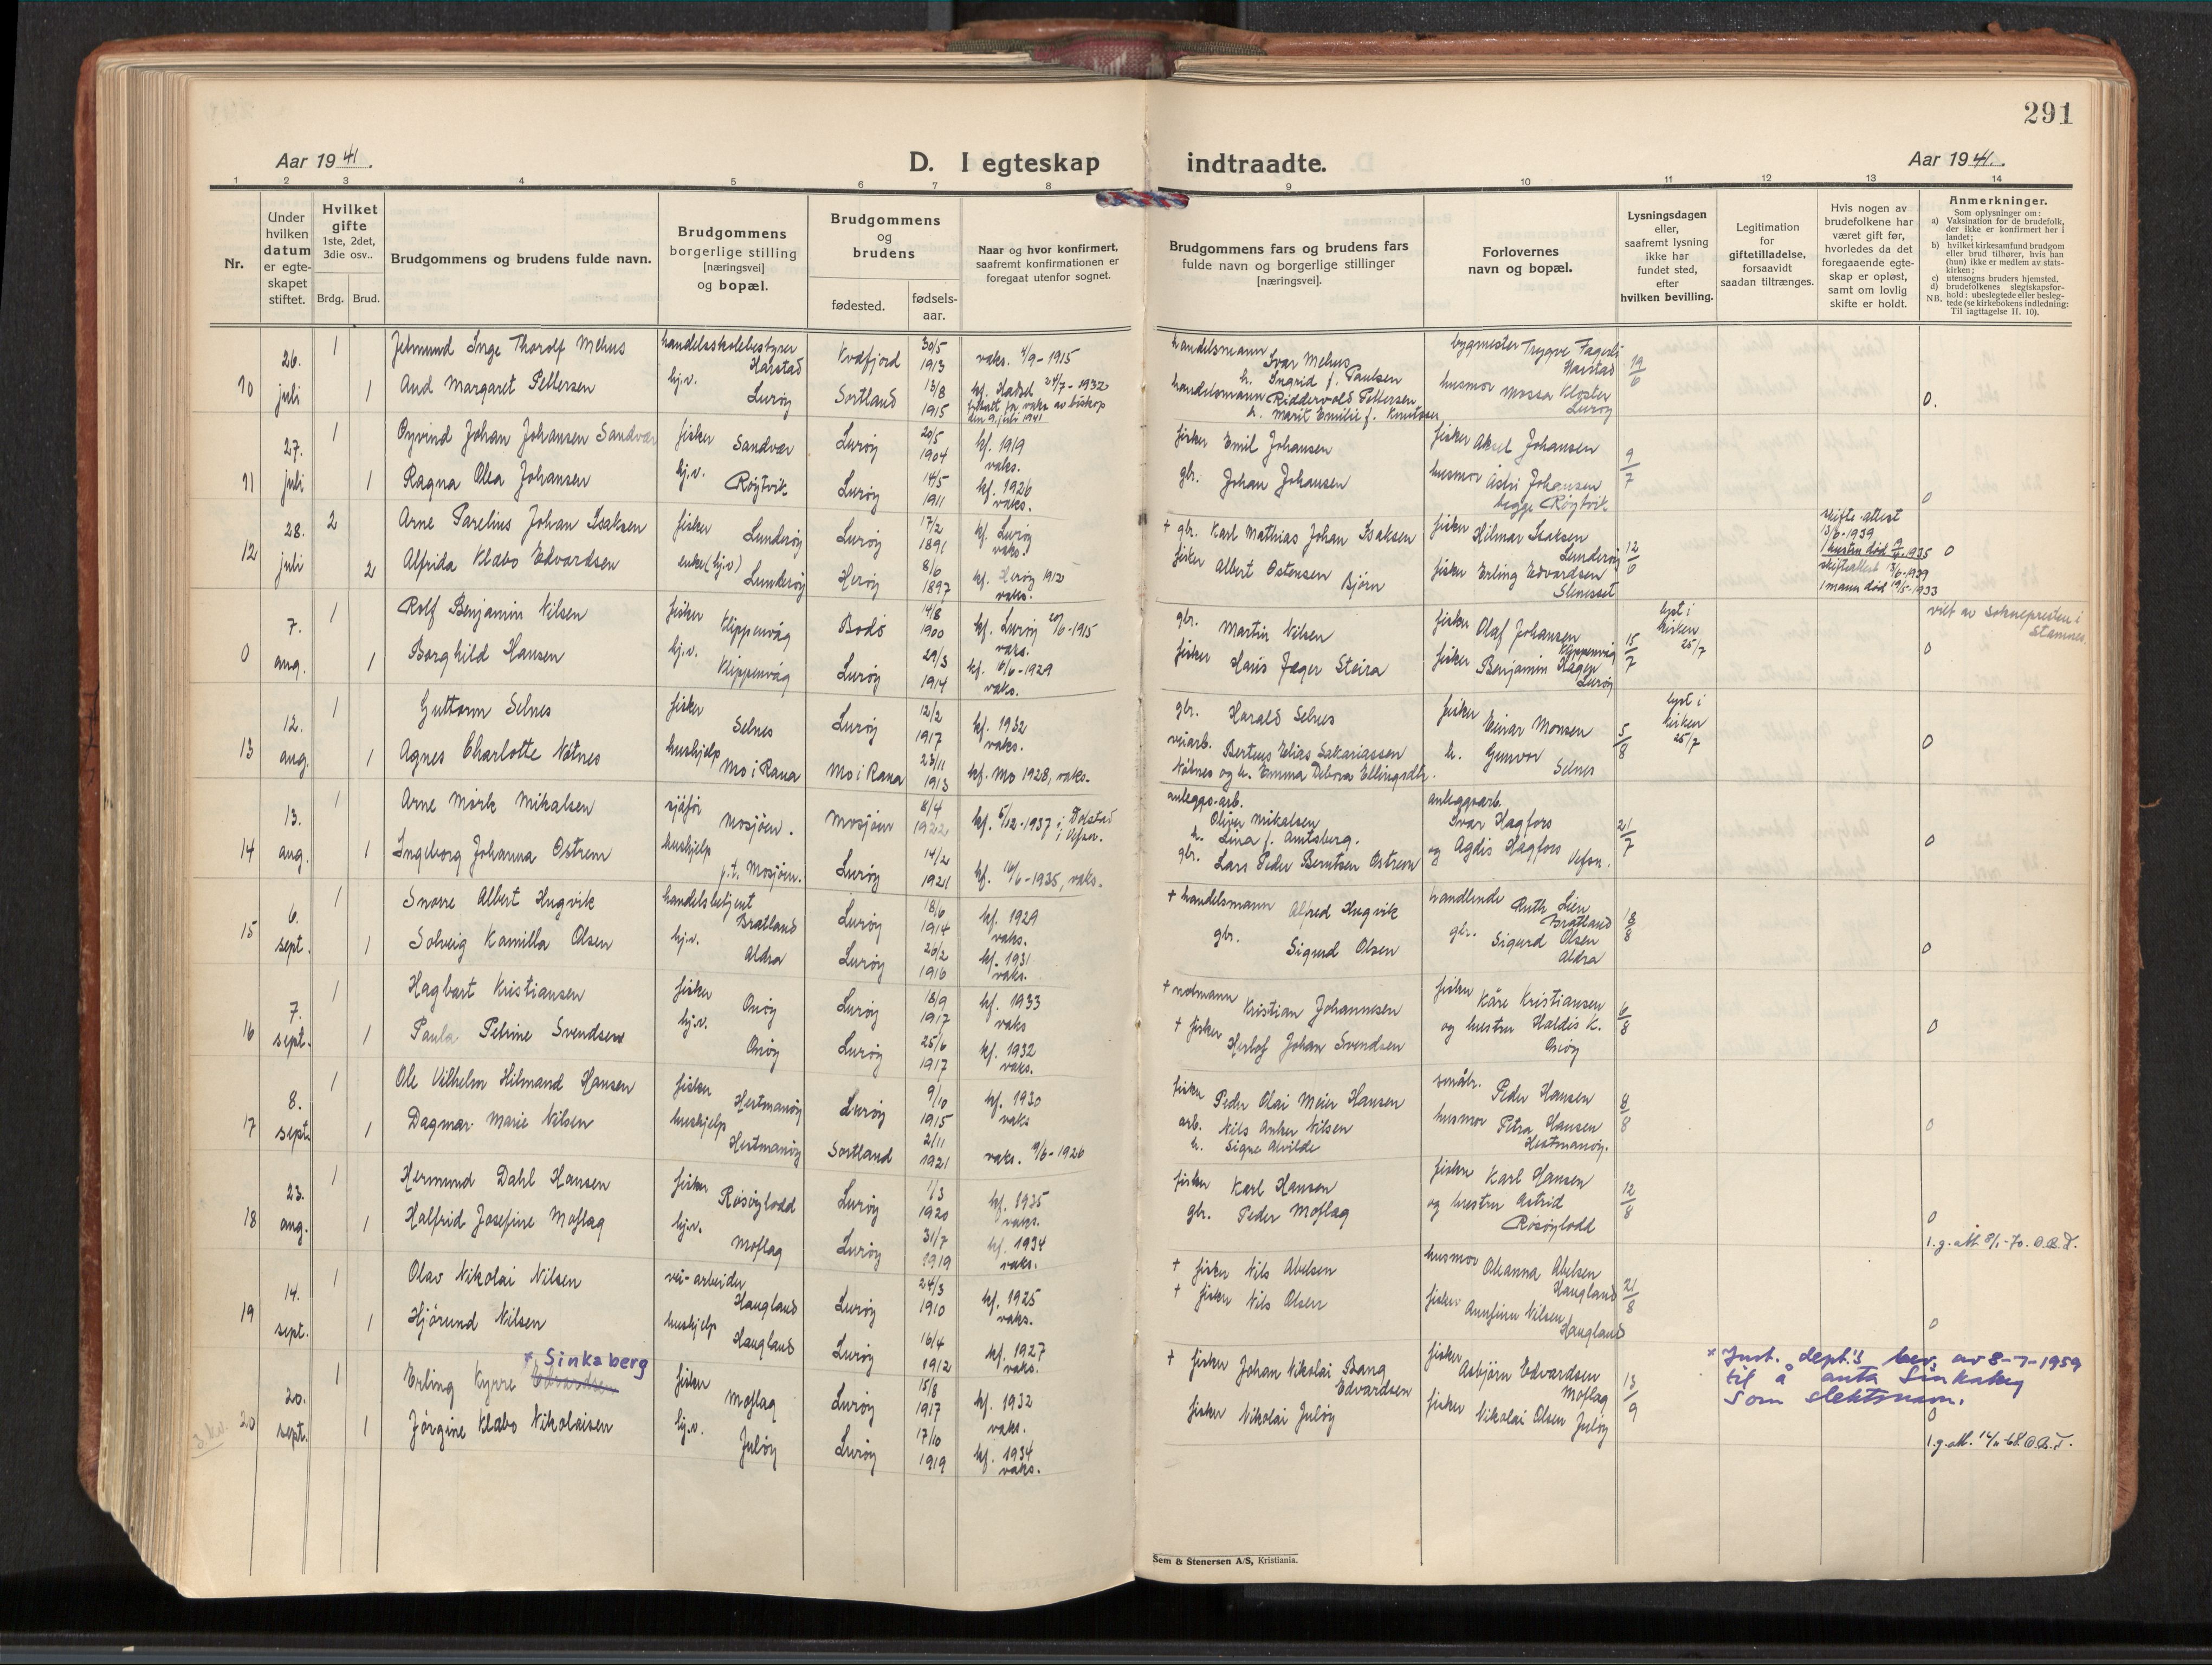 291
Aar 19 41.
D. I egteskap indtraadte.
Aar 19 41.
1 2 3 4 5 6 7 8 9 10 11 12 13 14
Nr.
Under
hvilken
datum
er egte-
skapet
stiftet.
Hvilket
gifte
1ste, 2det,
3die osv..
Brdg. Brud.
Brudgommens og brudens fulde navn.
Brudgommens
borgerlige stilling
[næringsvei]
og bopæl.
Brudgommens
og
brudens
fødested.
fødsels-
aar.
Naar og hvor konfirmert,
saafremt konfirmationen er
foregaat utenfor sognet.
Brudgommens fars og brudens fars
fulde navn og borgerlige stillinger
[næringsvei].
Forlovernes
navn og bopæl.
Lysningsdagen
eller,
saafremt lysning
ikke har
fundet sted,
efter
hvilken bevilling.
Legitimation
for
giftetilladelse,
forsaavidt
saadan tiltrænges.
Hvis nogen av
brudefolkene har
været gift før,
hvorledes da det
foregaaende egte-
skap er opløst,
samt om lovlig
skifte er holdt.
Anmerkninger.
Som oplysninger om:
a) Vaksination for de brudefolk,
der ikke er konfirmert her i
landet;
b) hvilket kirkesamfund brudgom
eller brud tilhører, hvis han
(hun) ikke er medlem av stats-
kirken;
c) utensogns bruders hjemsted.
d) brudefolkenes slegtskapsfor-
hold: ubeslegtede eller besleg-
NB. tede (se kirkebokens indledning:
Til iagttagelse II. 10).
10 26. juli
1 Jetmund Inge Thorolf Mehus handelsskolebestyrer Harstad Kvæfjord 30/5 1913 vaks. 4/9-1915
1 Aud Margaret Pettersen hj.v. Lurøy Sortland 13/8 1915 kf. Hadsel 24/7-1932
fritatt for vaks av biskop
den 9. juli 1941
handelsmann Ivar Mehus
h. Ingrid f. Paulsen
handelsmann Riddervold Pettersen
h. Marit Emilie f. Knutsen
bygmester Trygve Fagerli
Harstad
husmor Mossa Kloster
Lurøy
19/6
0.
11 27. juli
1 Øyvind Johan Johansen Sandvær fisker Sandvær Lurøy 20/5 1904 kf. 1919 vaks.
1 Ragna Olea Johansen hj.v. Røytvik Lurøy 14/5 1911 kf. 1926 vaks.
fisker Emil Johansen
gbr. Johan Johansen
fisker Aksel Johansen
husmor Astri Johansen
begge Røytvik
9/7
0
12 28. juli
2 Arne Parelius Johan Isaksen fisker Lunderøy Lurøy 17/2 1891 kf. Lurøy vaks.
2 Alfrida Klæbo Edvardsen enke (hj.v) Lunderøy Herøy 8/6 1897 kf. Herøy 1912 vaks.
+ gbr. Karl Mathias Johan Isaksen
fisker Albert Ostensen Bjørn
fisker Hilmar Isaksen
Lunderøy
fisker Erling Edvardsen
Slenesset
12/6
skifte attest
13/6-1939
1 hustru død 9/4 1935
skifteattest 3/6-1939
1 mann død 19/5-1933
0
0 7. aug.
1 Rolf Benjamin Nilsen fisker Klippenvåg Bodø 14/8 1900 kf. Lurøy 20/6-1915 vaks.
1 Borghild Hansen hj.v. Klippenvåg Lurøy 29/3 1914 kf. 16/6-1929 vaks.
gbr. Martin Nilsen
fisker Hans Jæger Steira
fisker Olaf Johansen
Klippenvåg
fisker Benjamin Hagen
Lurøy
15/7
lyst i
kirken
25/7
viet av soknepresten i
Stamnes.
0
13 12. aug.
1 Guttorm Selnes fisker Selnes Lurøy 12/2 1917 kf. 1932 vaks.
1 Agnes Charlotte Nøtnes hushjelp Mo i Rana Mo i Rana 23/11 1913 kf. Mo 1928, vaks.
gbr. Harald Selnes
veiarb. Berteus Elias Sakariassen
Nøtnes og h. Emma Debora Ellingsdtr.
fisker Einar Monsen
h. Gunvor Selnes
5/8
lyst i
kirken
25/7
0
14 13. aug.
1 Arne Mørk Mikalsen sjåfør Mosjøen. Mosjøen 8/4 1922 kf. 5/12-1937 i Dolstad
i Vefsn.
1 Ingeborg Johanna Østrem hushjelp p.t. Mosjøen. Lurøy 14/2 1921 kf. 16/6-1935, vaks.
anleggs-arb.
Oliver Mikalsen
h. Lina f. Amtsberg.
gbr. Lars Peder Berntsen Østrem
anleggsarb.
Ivar Hagfors
og Agdis Hagfors Vefsn.
21/7
0
15 6. sept.
1 Snorre Albert Hugvik handelsbetjent Bratland Lurøy 18/6 1914 kf. 1929 vaks.
1 Solveig Kamilla Olsen hj.v. Aldra Lurøy 20/2 1916 kf. 1931 vaks.
+ handelsmann Alfred Hugvik
gbr. Sigurd Olsen
handlende Ruth Lien
Bratland
gbr. Sigurd Olsen
Aldra
18/8
0
16 7. sept.
1 Hagbart Kristiansen fisker Onøy Lurøy 18/9 1917 kf. 1933 vaks
1 Paula Petrine Svendsen hj.v. Onøy Lurøy 25/6 1917 kf. 1932 vaks.
+ notmann Kristian Johannesen
+ fisker Herlof Johan Svendsen
fisker Kåre Kristiansen
og hustru Haldis K.
Onøy
6/8
0
17 8. sept.
1 Ole Vilhelm Hilmand Hansen fisker Hestmanøy Lurøy 9/10 1915 kf. 1930 vaks
1 Dagmar Marie Nilsen hushjelp Hestmanøy Sortland 2/11 1921 vaks. 9/6-1926
fisker Peder Olai Meier Hansen
arb. Nils Anker Nilsen
h. Signe Alvilde
småbr. Peder Hansen
husmor Petra Hansen
Hestmanøy.
8/8
0
18 23. aug.
1 Hermund Dahl Hansen fisker Røsøylodd Lurøy 1/3 1920 kf. 1935 vaks.
1 Halfrid Josefine Moflag hj.v. Moflag Lurøy 31/7 1919 kf. 1934 vaks.
fisker Karl Hansen
gbr. Peder Moflag
fisker Karl Hansen
og hustru Astrid
Røsøylodd
12/8
0
1. g. att 8/1-70. O.B.T.
19 14. sept.
1 Olav Nikolai Nilsen vei-arbeider Haugland Lurøy 24/3 1910 kf. 1925 vaks.
1 Hjørund Nilsen hushjelp Haugland Lurøy 16/4 1912 kf. 1927 vaks.
+ fisker Nils Abelsen
+ fisker Nils Olsen
husmor Oleanna Abelsen
Haugland
fisker Annfinn Nilsen
Haugland
21/8
0
20 20. sept.
× Sinkaberg
1 Erling Kyrre Edvardsen fisker Moflag Lurøy 15/8 1917 kf. 1932 vaks.
1 Jørgine Klæbo Nikolaisen hj.v. Juløy Lurøy 17/10 1919 kf. 1934 vaks.
+ fisker Johan Nikolai Bang
Edvardsen
fisker Nikolai Juløy
fisker Asbjørn Edvardsen
Moflag
fisker Nikolai Olsen Juløy
13/9
× Just. dept.'s bev. av 8-7-1959
til å anta Sinkaberg
som slektsnavn.
0
1. g. att. 14/11-68. O.B.T.
Sem & Stenersen A/S, Kristiania.